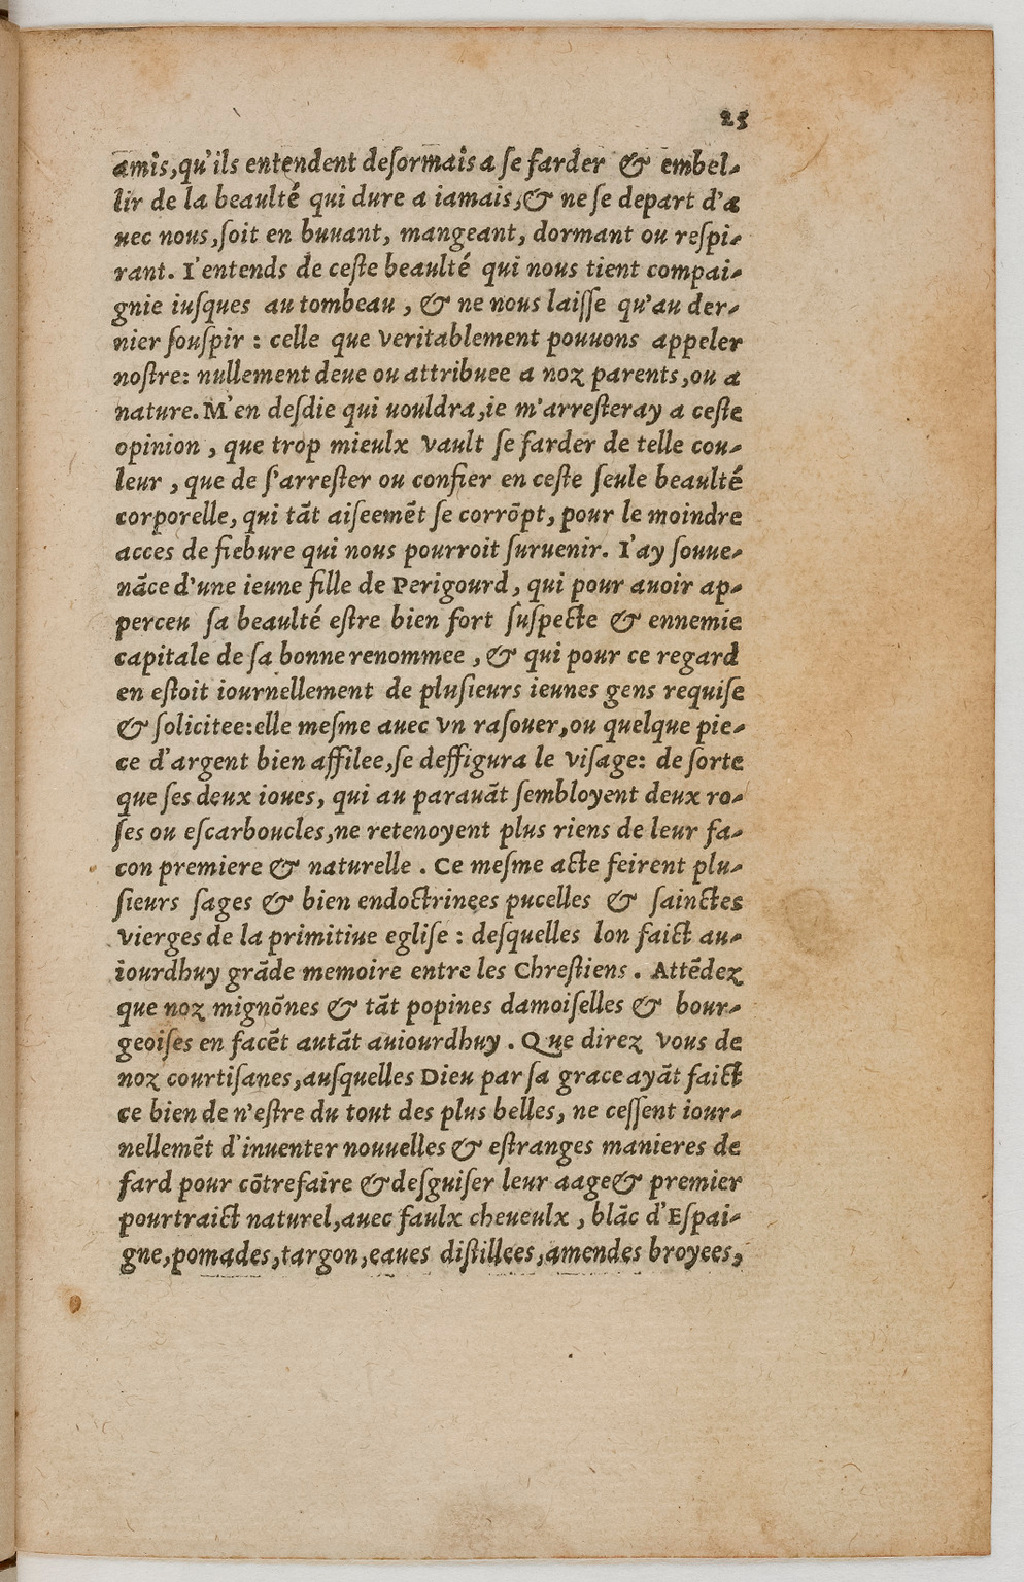 25
amis, qu'ils entendent deſormais a ſe farder & embel-
lir de la beaulté qui dure a iamais, & ne ſe depart d'a
uec nous, ſoit en buuant, mangeant, dormant ou reſpi-
rant. I'entends de ceſte beaulté qui nous tient compai-
gnie iuſques au tombeau, & ne nous laiſſe qu'au der-
nier ſouſpir: celle que veritablement pouuons appeler
noſtre: nullement deue ou attribuee a noz parents, ou a
nature. M'en deſdie qui uouldra, ie m'arreſteray a ceſte
opinion, que trop mieulx vault ſe farder de telle cou-
leur, que de ſ'arreſter ou confier en ceſte ſeule beaulté
corporelle, qui tāt aiſeemēt ſe corrōpt, pour le moindre
acces de fiebure qui nous pourroit ſuruenir. I'ay ſouue-
nāce d'une ieune fille de Perigourd, qui pour auoir ap-
perceu ſa beaulté eſtre bien fort ſuſpecte & ennemie
capitale de ſa bonne renommee, & qui pour ce regard
en eſtoit iournellement de pluſieurs ieunes gens requiſe
& ſolicitee: elle meſme auec vn raſouer, ou quelque pie-
ce d'argent bien affilee, ſe deffigura le viſage: de ſorte
que ſes deux ioues, qui au parauāt ſembloyent deux ro-
ſes ou eſcarboucles, ne retenoyent plus riens de leur fa-
con premiere & naturelle. Ce meſme acte feirent plu-
ſieurs ſages & bien endoctrinees pucelles & ſainctes
vierges de la primitiue egliſe: deſquelles lon faict au-
iourdhuy grāde memoire entre les Chreſtiens. Attēdez
que noz mignōnes & tāt popines damoiſelles & bour-
geoiſes en facēt autāt auiourdhuy. Que direz vous de
noz courtiſanes, auſquelles Dieu par ſa grace ayāt faict
ce bien de n'eſtre du tout des plus belles, ne ceſſent iour-
nellemēt d'inuenter nouuelles & eſtranges manieres de
fard pour cōtrefaire & deſguiſer leur aage & premier
pourtraict naturel, auec faulx cheueulx, blāc d'Eſpai-
gne, pomades, targon, eaues diſtillees, amendes broyees,